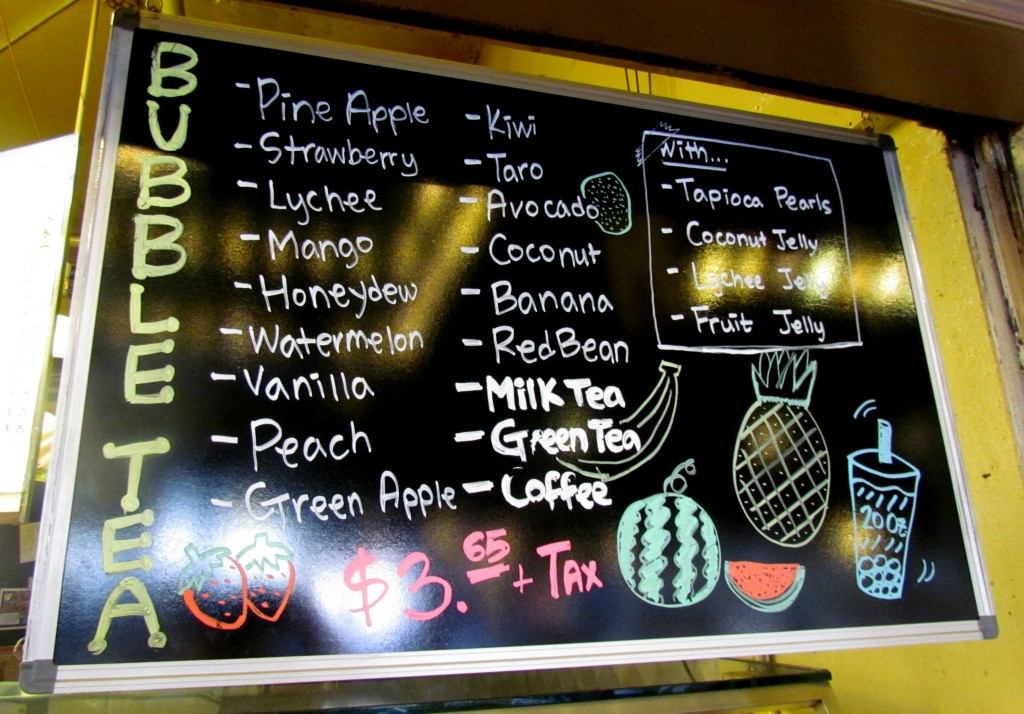 BUBBLE TEA
- Pine Apple
- Strawberry
- Lychee
- Mango
- Honeydew
- Watermelon
- Vanilla
- Peach
- Green Apple
- Kiwi
- Taro
- Avocado
- Coconut
- Banana
- Red Bean
- Milk Tea
- Green Tea
- Coffee
With...
- Tapioca Pearls
- Coconut Jelly
- Lychee Jelly
- Fruit Jelly
$3.65 + Tax